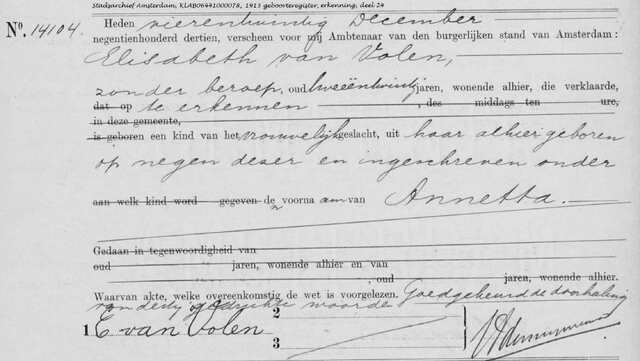 Stadsarchief Amsterdam, KLAB06441000078, 1913 geboorteregister, erkenning, deel 24
No. 14104. Heden vierentwintig December
negentienhonderd dertien, verscheen voor mij Ambtenaar van den burgerlijken stand van Amsterdam:
Elisabeth van Volen,
zonder beroep, oud tweeëntwintig jaren, wonende alhier, die verklaarde,
dat op te erkennen , des middags ten ure,
in deze gemeente,
is geboren een kind van het vrouwelijk geslacht, uit haar alhier geboren
op negen dezer en ingeschreven onder
aan welk kind word gegeven den voornaam van Annetta.
Gedaan in tegenwoordigheid van
oud jaren, wonende alhier en van
, oud jaren, wonende alhier.
Waarvan akte, welke overeenkomstig de wet is voorgelezen. Goedgekeurd de doorhaling
van gedrukte woorden
2
1 E van Volen
3